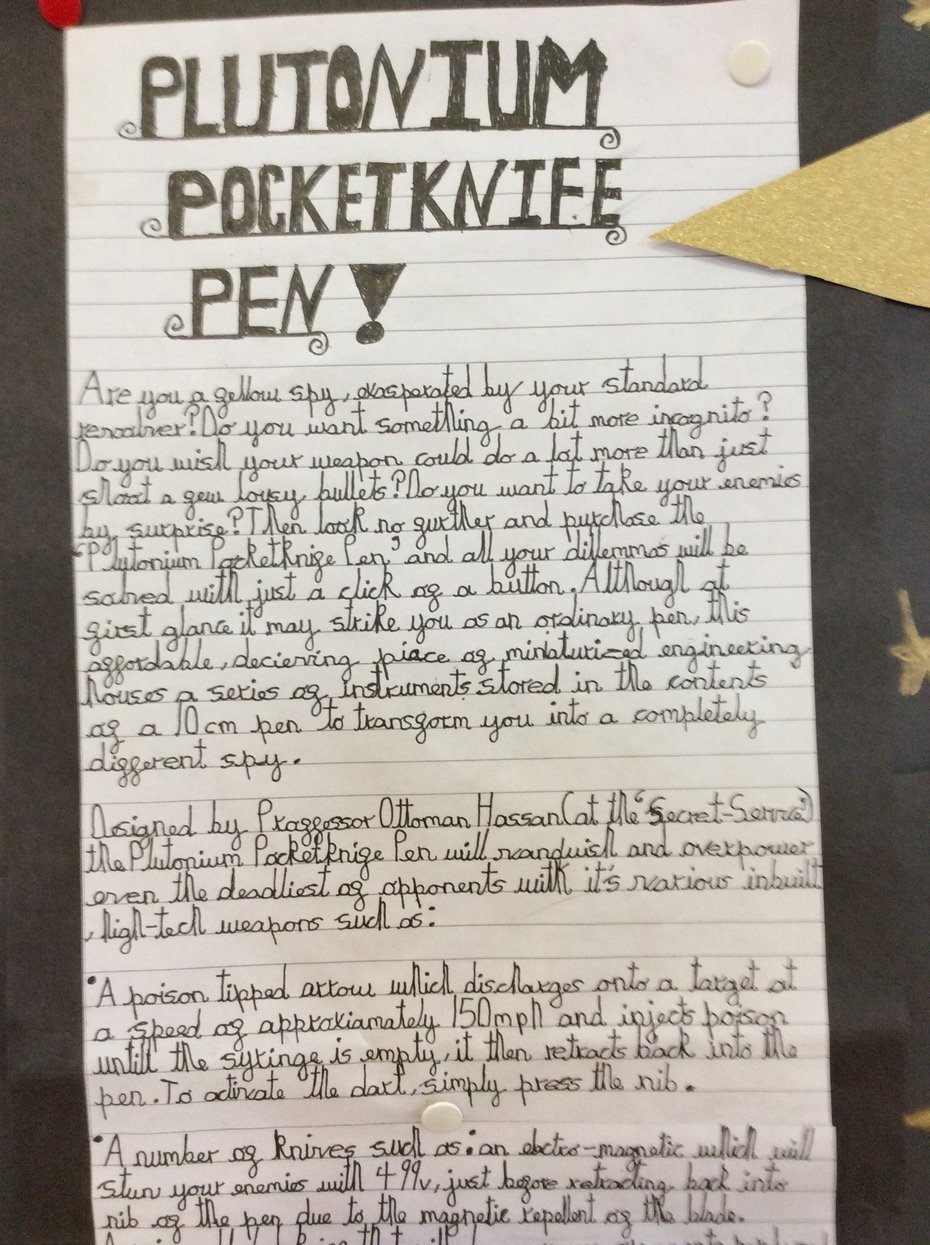 PLUTONIUM
POCKETKNIFE
PEN!
Are you a fellow spy, exasperated by your standard
revolver? Do you want something a bit more incognito?
Do you wish your weapon could do a lot more than just
shoot a few lousy bullets? Do you want to take your enemies
by surprise? Then look no further and purchase the
'Plutonium Pocketknife Pen' and all your dillemmas will be
solved with just a click of a button. Although at
first glance it may strike you as an ordinary pen, this
affordable, decieving piece of miniaturized engineering
houses a series of instruments stored in the contents
of a 10cm pen to transform you into a completely
different spy.
Designed by Proffessor Ottoman Hassan (at the 'Secret-Service')
the Plutonium Pocketknife Pen will vanquish and overpower
even the deadliest of opponents with it's various inbuilt
, high-tech weapons such as:
•A poison tipped arrow which discharges onto a target at
a speed of approxiamately 150mph and injects poison
untill the syringe is empty, it then retracts back into the
pen. To activate the dart, simply press the nib.
•A number of knives such as: an electro-magnetic which will
stun your enemies with 499v, just before retracting back into
nib of the pen due to the magnetic repellent of the blade.